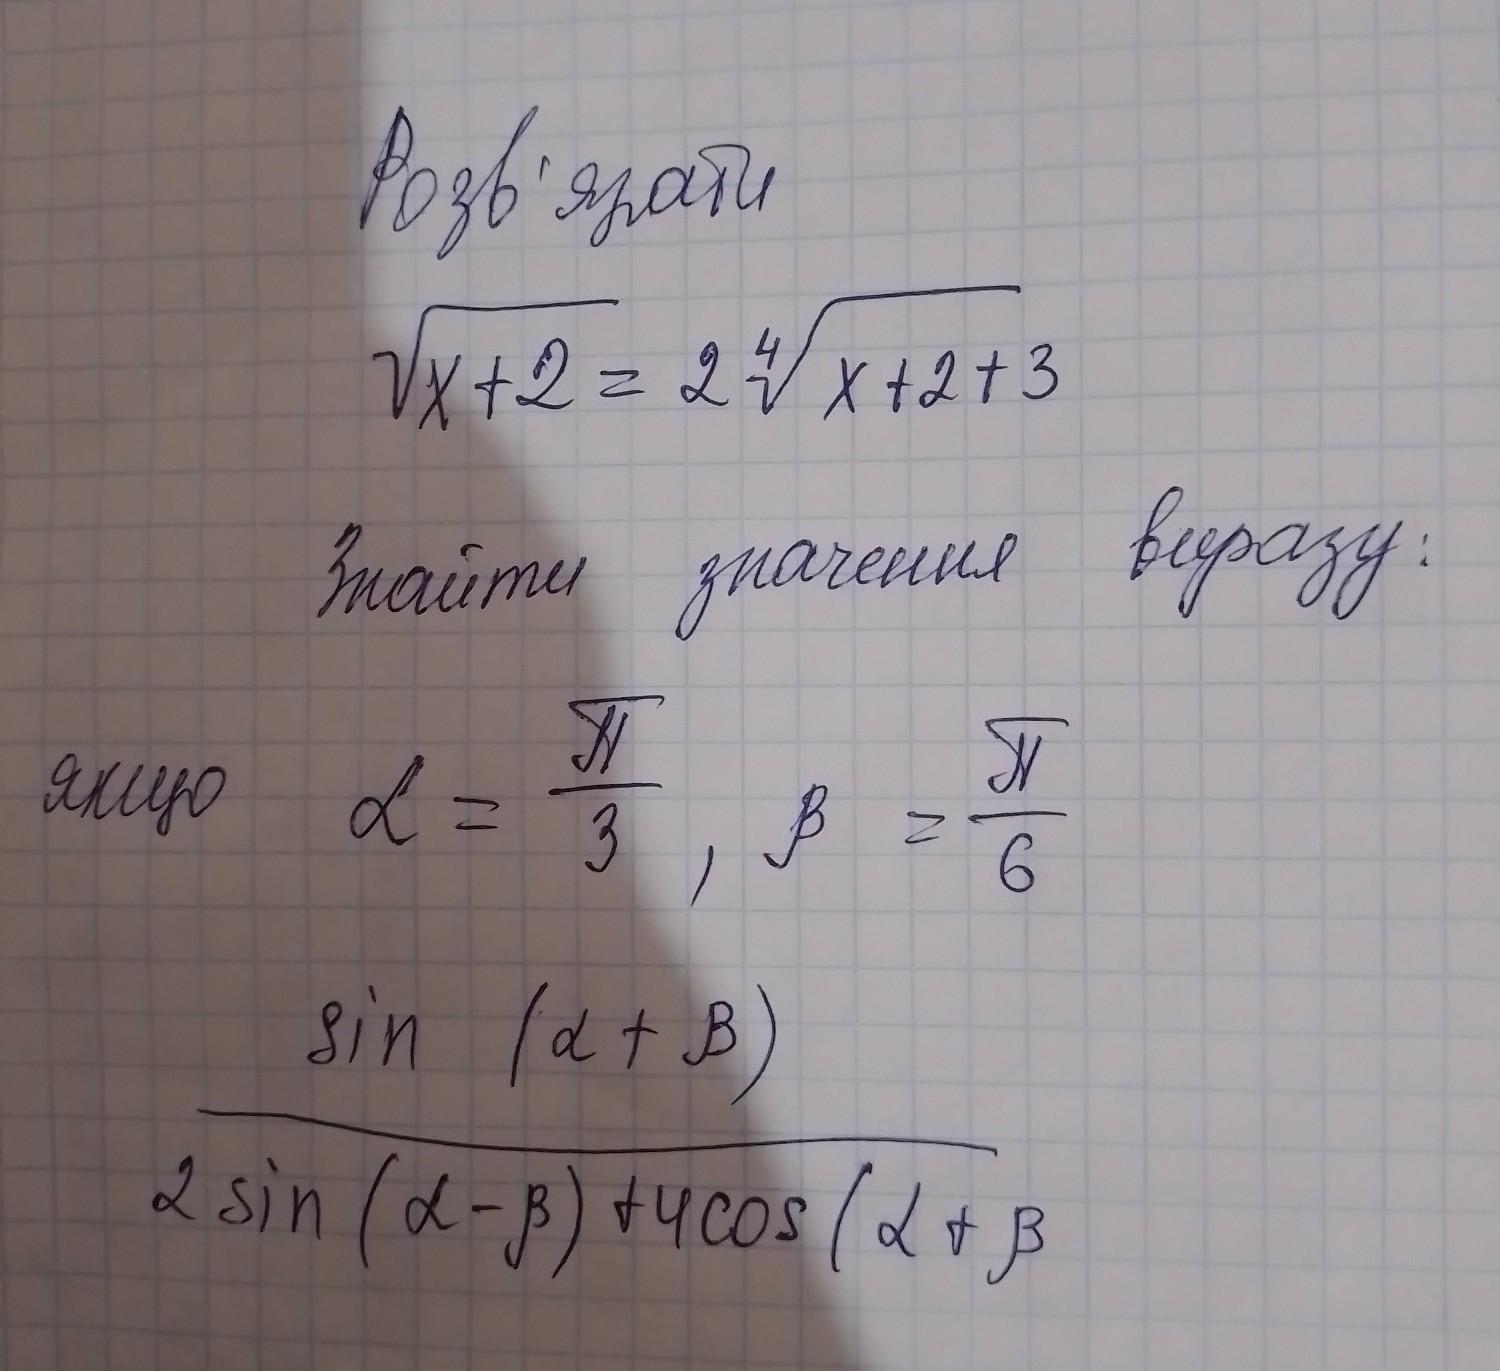 Розв'язати
√x+2 = 2 ⁴√x+2+3
Знайти значення виразу:
якщо α = π/3 , β = π/6
sin (α + β)
2 sin (α - β) + 4 cos (α + β